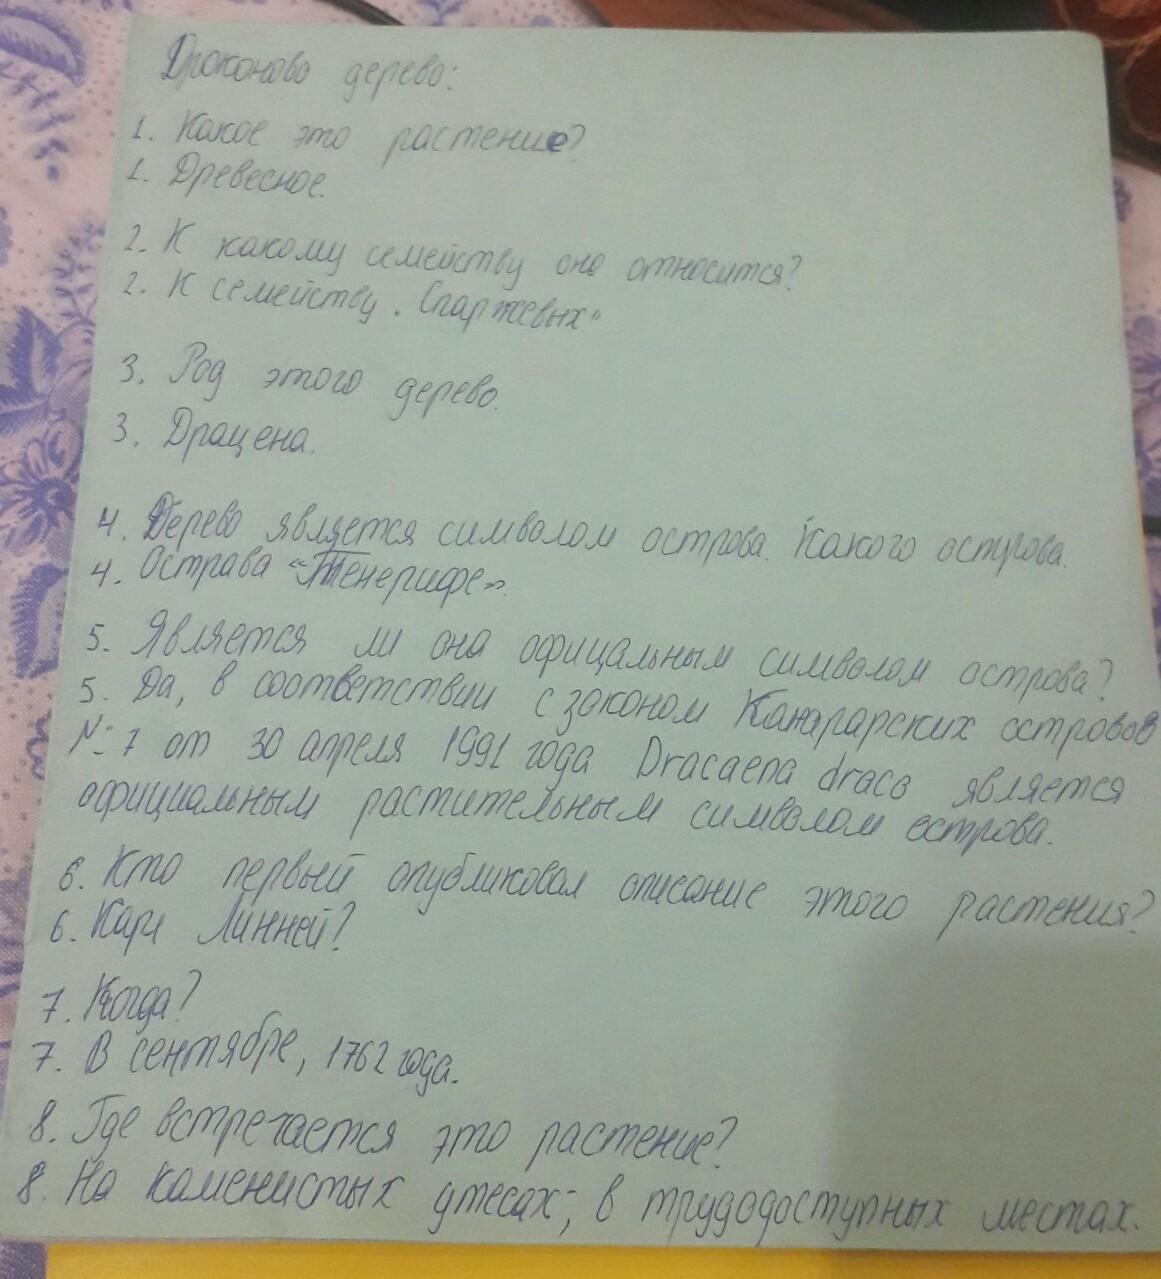 Драконово дерево:
1. Какое это растение?
1. Древесное.
2. К какому семейству оно относится?
2. К семейству „Спаржевых"
3. Род этого дерево.
3. Драцена.
4. Дерево является символом острова. Какого острова.
4. Острава «Тенерифе».
5. Является ли она официальным символом острова?
5. Да, в соответствии с законом Канарарских островов
№ 7 от 30 апреля 1991 года Dracaena draco является
официальным растительным символом острова.
6. Кто первый опубликовал описание этого растения?
6. Карл Линней?
7. Когда?
7. В сентябре, 1762 года.
8. Где встречается это растение?
8. На каменистых утесах; в трудодоступных местах.